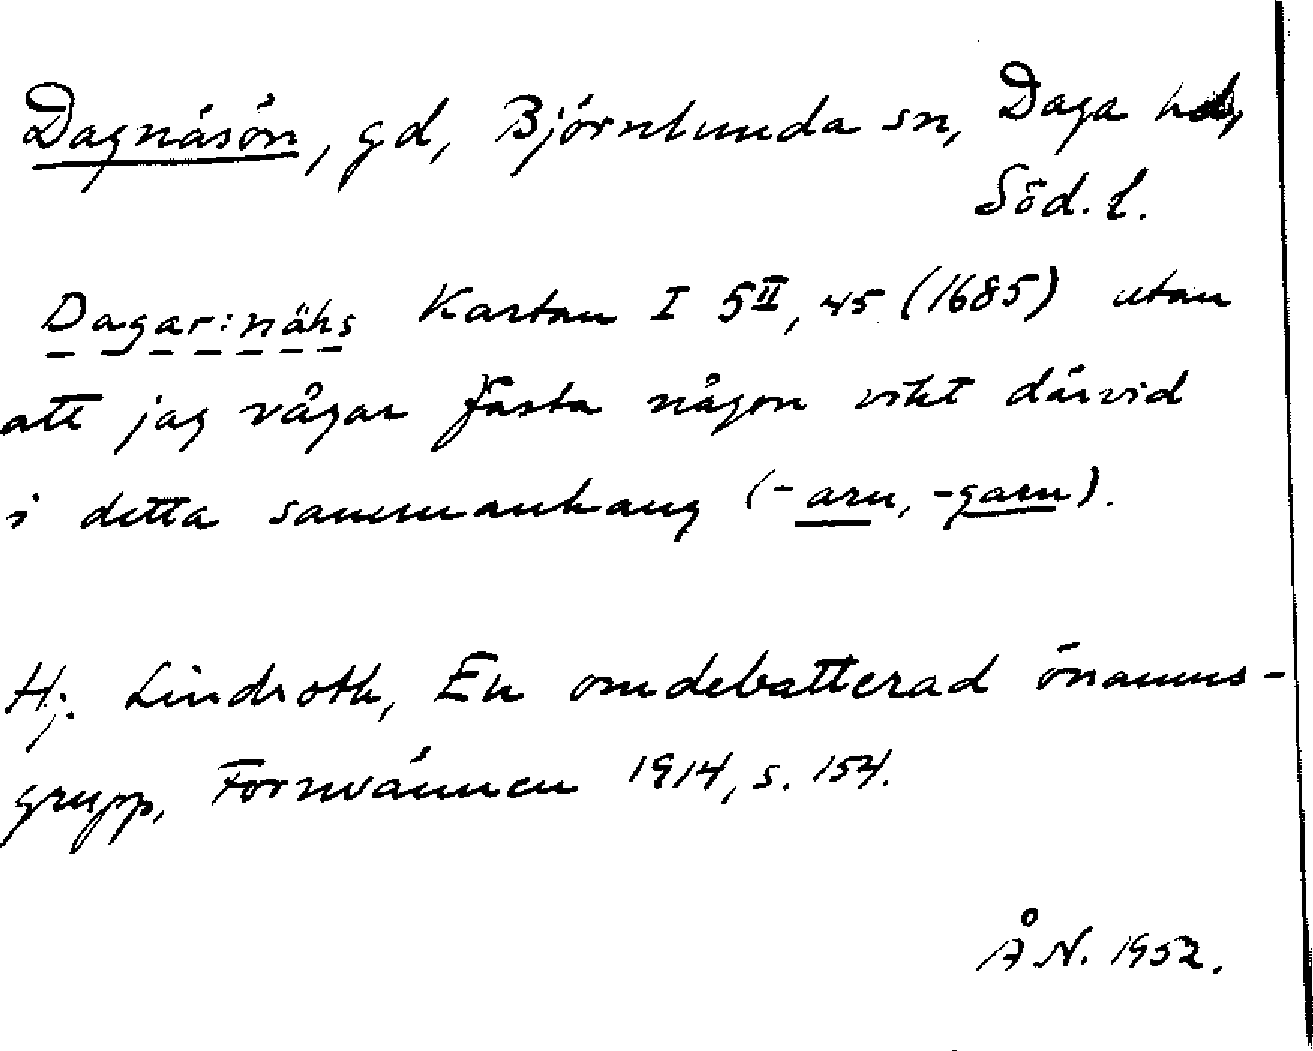 Dagnäsön, gd, Björnlunda sn, Daga hd,
Söd. l.
Dagar:nähs Kartan I 5II, 45 (1685) utan
att jag vågar fästa någon vikt därvid
i detta sammanhang (-arn, -garn).
Hj. Lindroth, En omdebatterad önamns-
grupp, Fornvännen 1914, s. 154.
Å N. 1952.